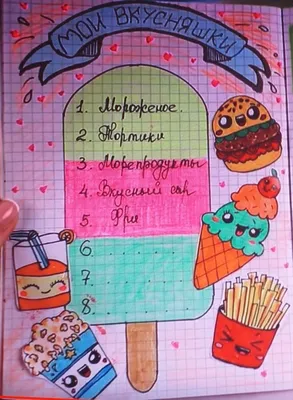 МОИ ВКУСНЯШКИ
1. Мороженое.
2. Тортики
3. Морепродукты
4. Вкусный сыр
5. Фри
6. . . . . . . .
7. . . . . . . .
8. . . . . . . .